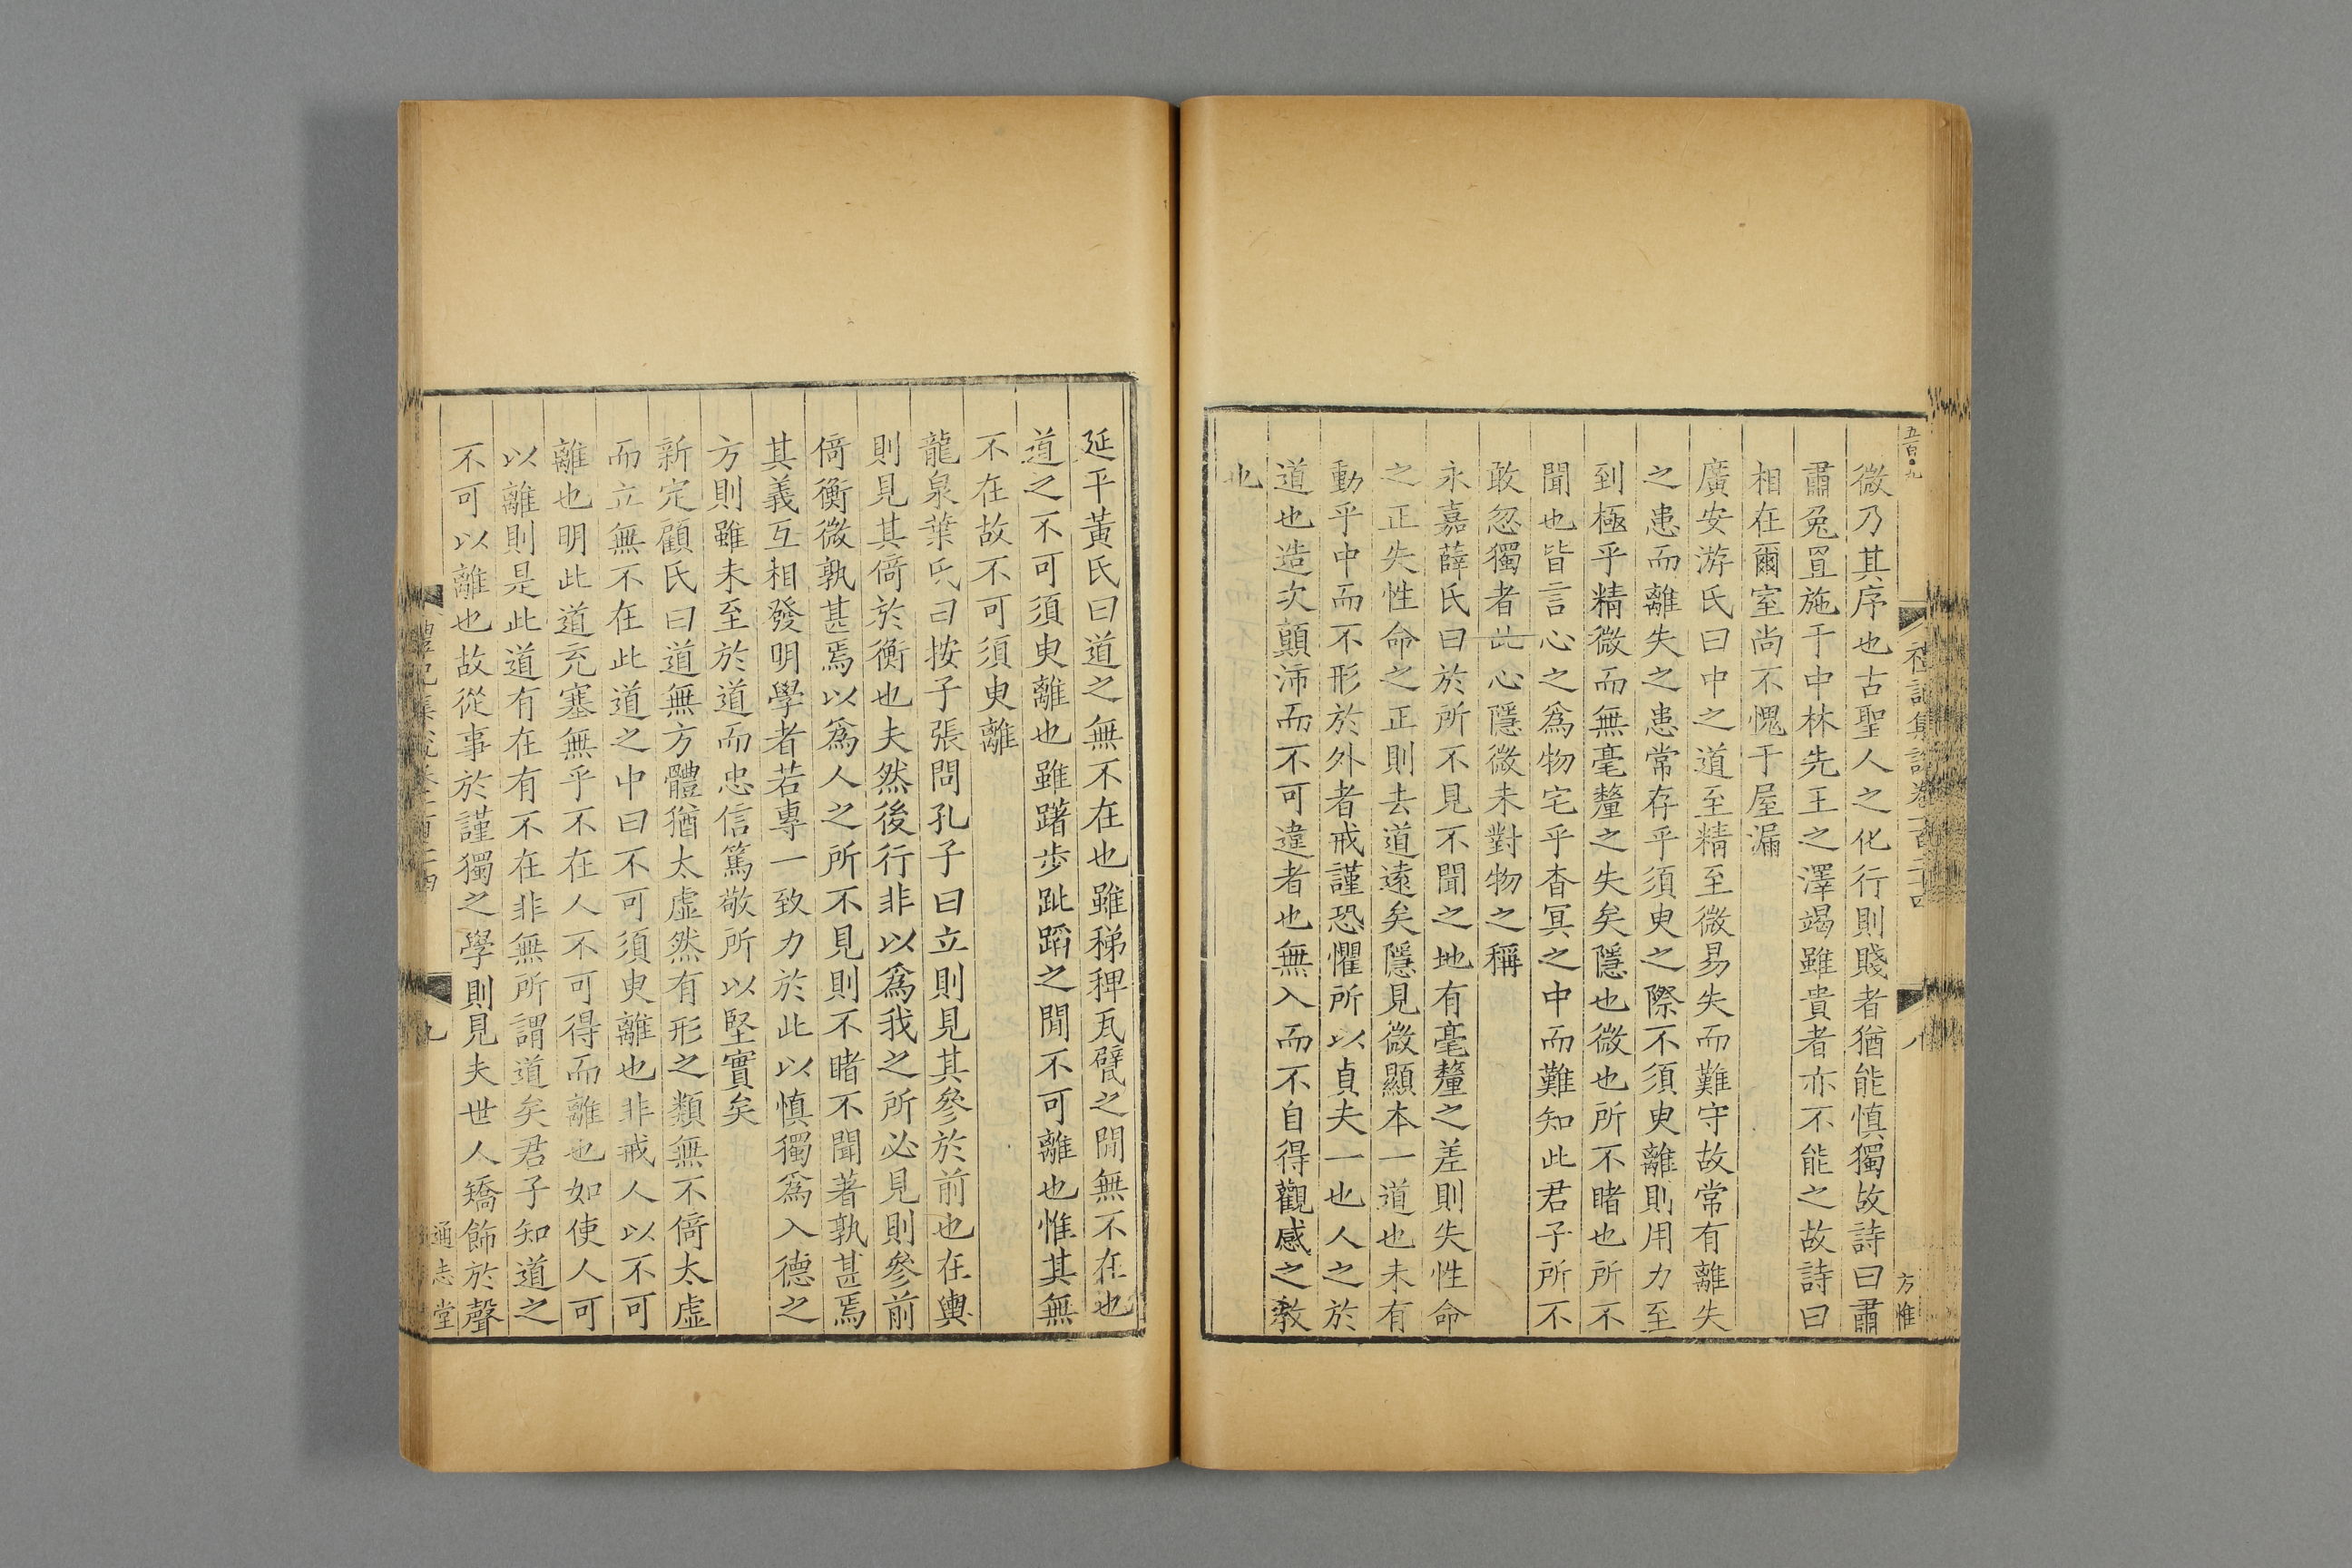 五百九
禮記集說卷一百二十四
八
方惟
微乃其序也古聖人之化行則賤者猶能慎獨故詩曰肅
肅兔罝施于中林先王之澤竭雖貴者亦不能之故詩曰
相在爾室尚不愧于屋漏
廣安游氏曰中之道至精至微易失而難守故常有離失
之患而離失之患常存乎須臾之際不須臾離則用力至
到極乎精微而無毫釐之失矣隱也微也所不睹也所不
聞也皆言心之爲物宅乎杳冥之中而難知此君子所不
敢忽獨者此心隱微未對物之稱
永嘉薛氏曰於所不見不聞之地有毫釐之差則失性命
之正失性命之正則去道遠矣隱見微顯本一道也未有
動乎中而不形於外者戒謹恐懼所以貞夫一也人之於
道也造次顛沛而不可違者也無入而不自得觀感之教
也
延平黃氏曰道之無不在也雖稊稗瓦甓之閒無不在也
道之不可須臾離也雖躇步跐蹈之閒不可離也惟其無
不在故不可須臾離
龍泉葉氏曰按子張問孔子曰立則見其參於前也在輿
則見其倚於衡也夫然後行非以爲我之所必見則參前
倚衡微孰甚焉以爲人之所不見則不睹不聞著孰甚焉
其義互相發明學者若專一致力於此以慎獨爲入德之
方則雖未至於道而忠信篤敬所以堅實矣
新定顧氏曰道無方體猶太虛然有形之類無不倚太虛
而立無不在此道之中曰不可須臾離也非戒人以不可
離也明此道充塞無乎不在人不可得而離也如使人可
以離則是此道有在有不在非無所謂道矣君子知道之
不可以離也故從事於謹獨之學則見夫世人矯飾於聲
禮記集說卷一百二十四
九
通志堂